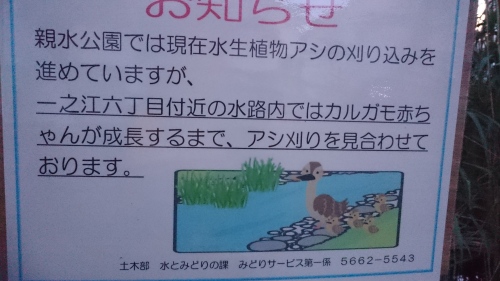 お知らせ
親水公園では現在水生植物アシの刈り込みを
進めていますが、
一之江六丁目付近の水路内ではカルガモ赤ち
ゃんが成長するまで、アシ刈りを見合わせて
おります。
土木部 水とみどりの課 みどりサービス第一係 5662-5543